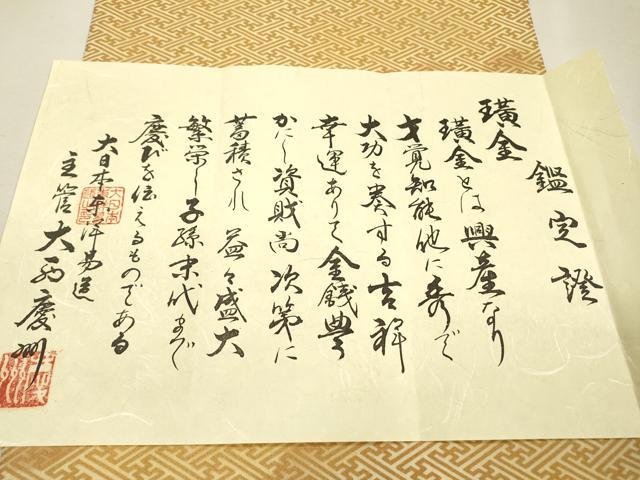 鑑定證
璜金
璜金とは興産なり
才覚知能他に秀で
大功を奏する吉祥
幸運ありて金錢豊
かにし資財尚次第に
蓄積され益々盛大
繁栄し子孫末代まで
慶びを伝えるものである
大日本東洋易道
主管大西慶州